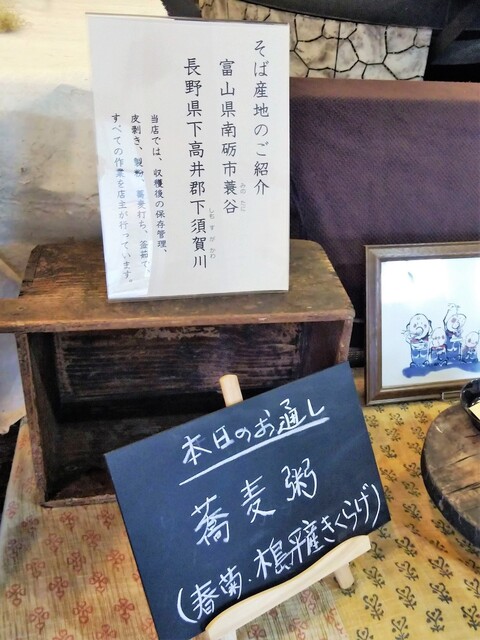 そば産地のご紹介
富山県南砺市蓑谷
みのたに
長野県下高井郡下須賀川
しもすがかわ
当店では、収穫後の保存管理、
皮剥き、製粉、蕎麦打ち、釜茹で、
すべての作業を店主が行っています。
本日のお通し
蕎麦粥
(春菊・椿平産きくらげ)